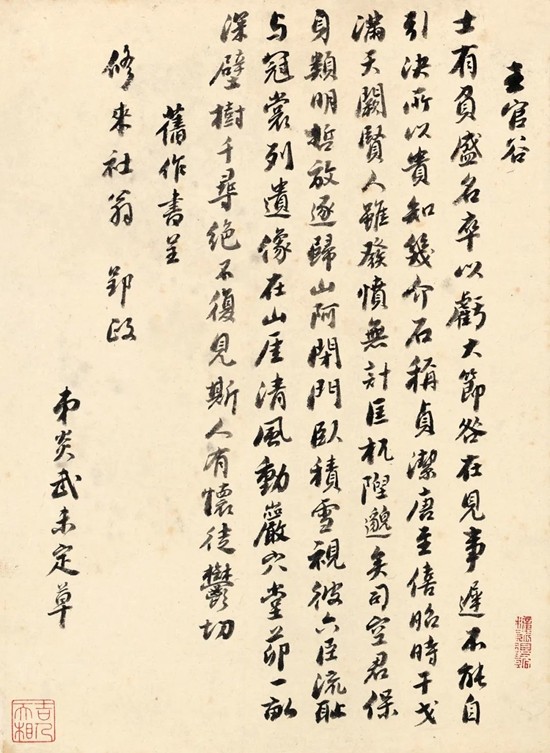 王官谷
士有負盛名卒以虧大節咎在見事遲不能自
引決所以貴知幾介石稱貞潔唐至僖昭時干戈
滿天闕賢人雖發憤無計匡杌隉邈矣司空君保
身類明哲放逐歸山阿閉門臥積雪視彼六臣流恥
与冠裳列遺像在山厓清風動巖穴堂茆一畝
深壁樹千尋絕不復見斯人有懷徒鬱切
舊作書呈
修来社翁 郢政
弟炎武未定草
吉人
天相